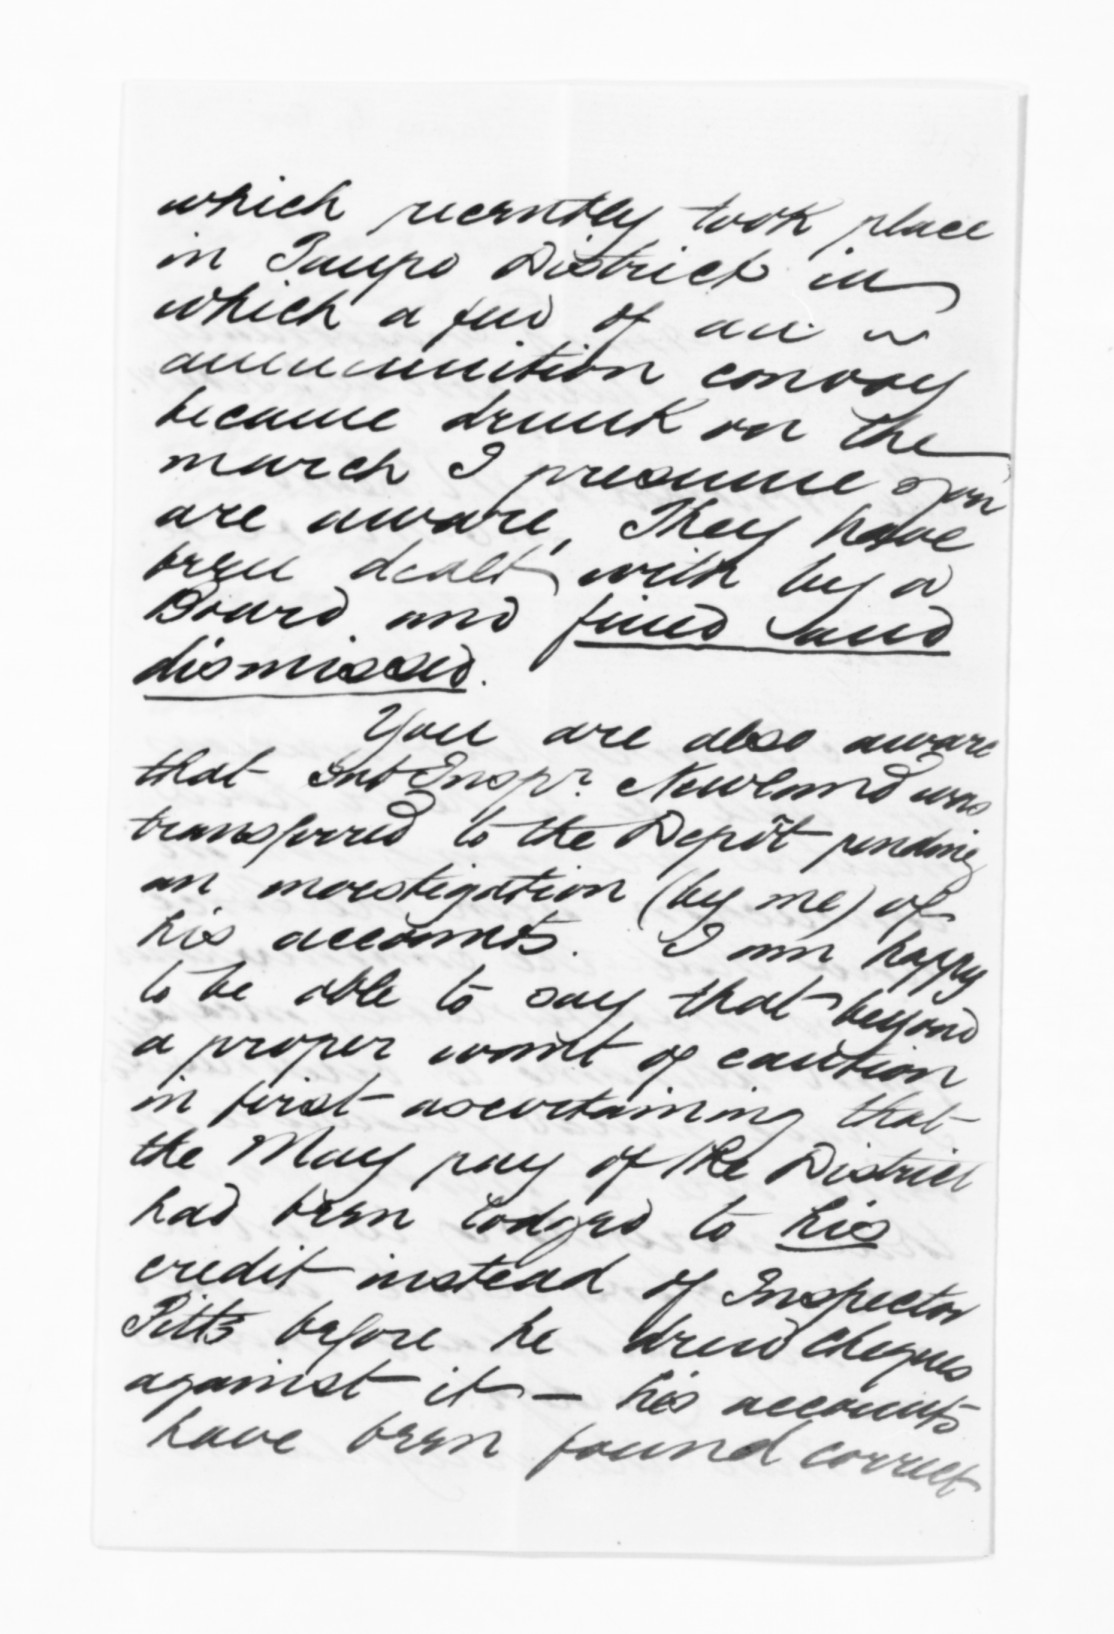 which recently took place
in Taupo District in
which a few of an
ammunition convoy
became drunk on the
march I presume you
are aware, They have
been dealt with by a
Board and fined and
dismissed.
You are also aware
that Sub Inspr. Newland was
transferred to the Depôt pending
an investigation (by me) of
his accounts. I am happy
to be able to say that beyond
a proper want of caution
in first ascertaining that
the May pay of the District
had been lodged to his
credit instead of Inspector
Pitts before he drew cheques
against it – his accounts
have been found correct